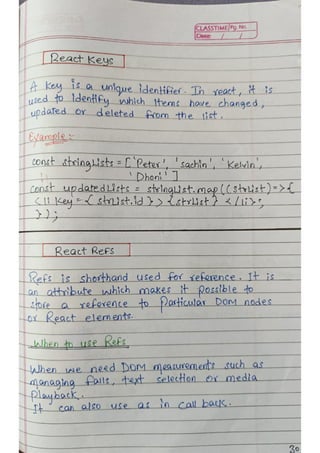 CLASSTIME/Pg. No.
Date: / /
React Keys
A key is a unique identifier. In react, it is
used to identify which items have changed,
updated or deleted from the list.
Example :-
const stringLists = ['Peter', 'sachin', 'Kelvin',
'Dhoni']
const updatedLists = stringList.map((strList) => {
<li key = { strList.id } > { strList } </li>;
});
React Refs
Refs is shorthand used for reference. It is
an attribute which makes it possible to
store a reference to Particular DOM nodes
or React elements.
When to use Refs
When we need DOM measurements such as
managing text selection or media
Playback.
It can also use as in call back.
30